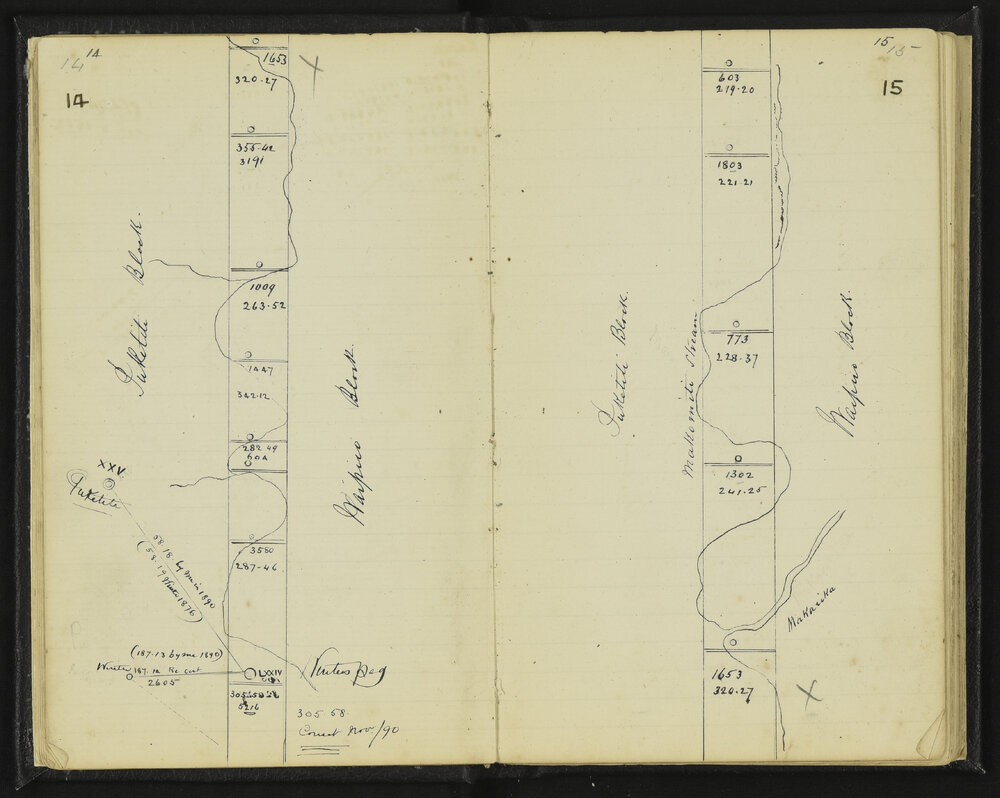 14
14
14
1653
320.27
355.42
3191
1009
263.52
1447
342.12
282.49
604
3580
287.46
Puketiti Block.
Waipiro Block.
XXV
Puketiti
58.18 by me in 1890
(58.19 Winter 1876)
(187.13 by me 1890)
Winter 187.12
2605
LXXIV
305°58
5216
Winters Peg
305 58.
Correct Nov./90
15
15
15
603
219.20
1803
221.21
773
228.37
1302
241.25
1653
320.27
Puketiti Block.
Stream
Waipiro Block.
Makarika